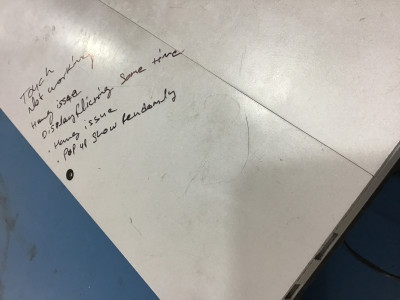 Touch
Not working
Hang issue
Display flicing Some time
. Hang issue
. POP UP Show Rendamly